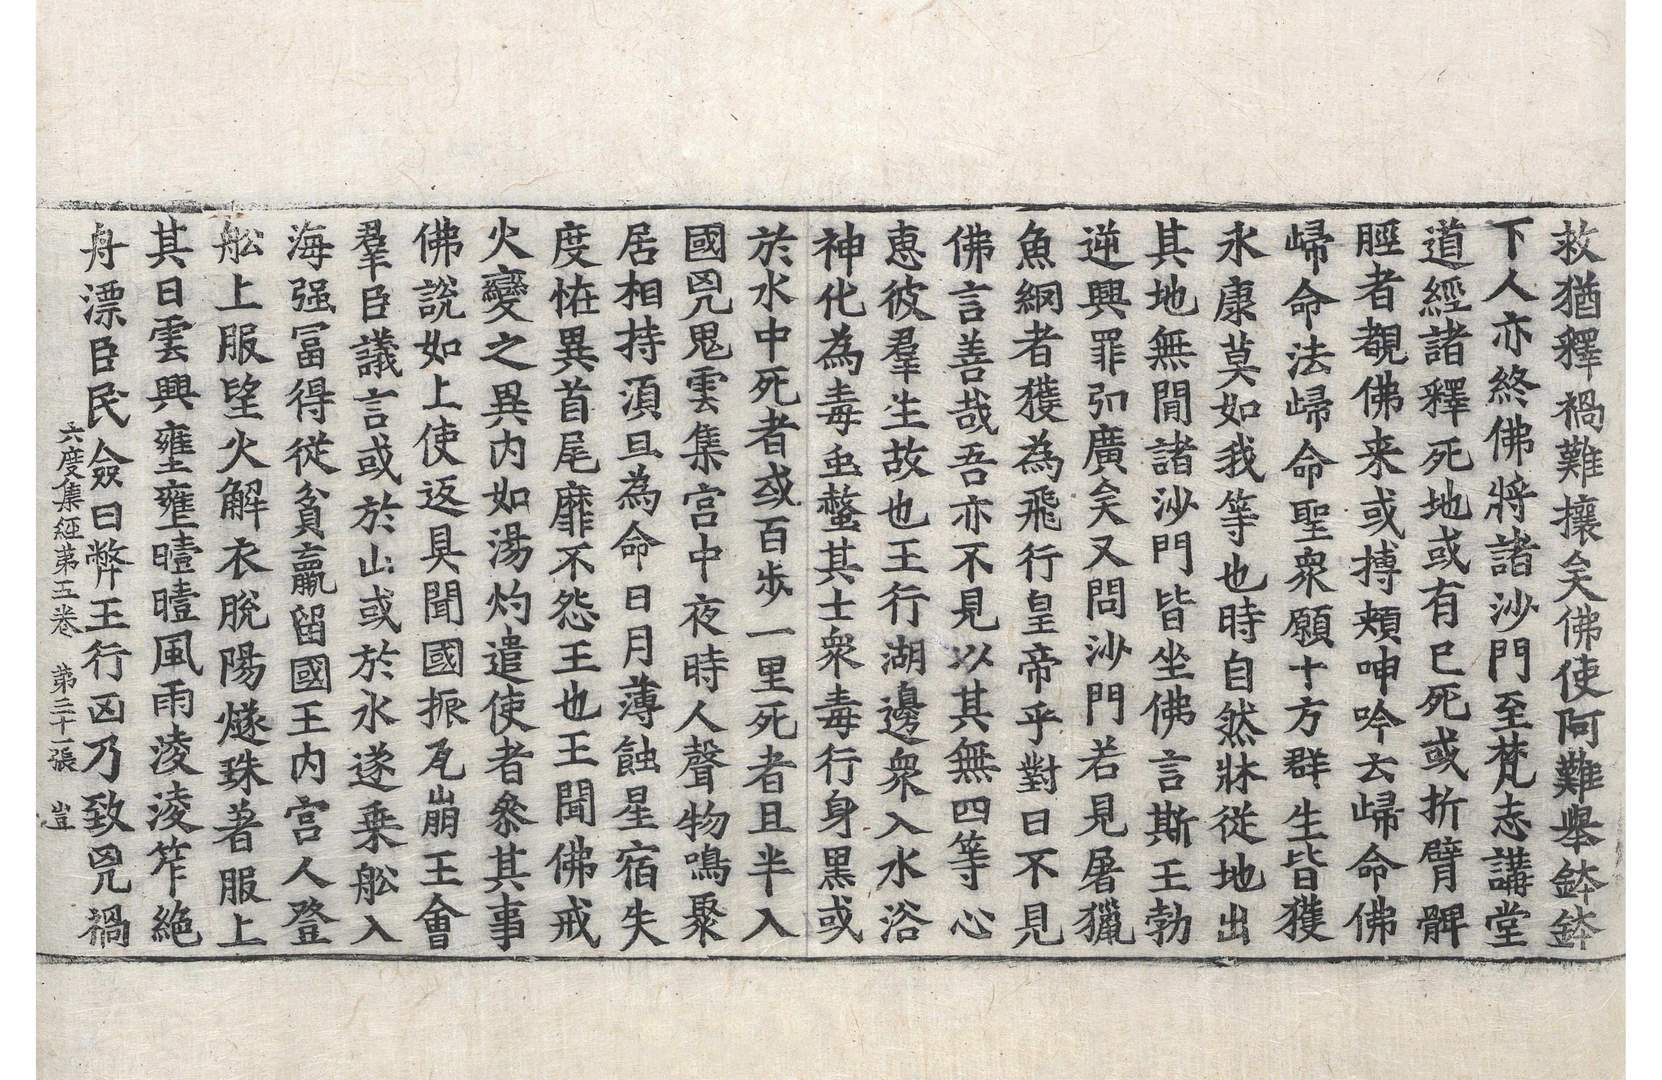 救猶釋禍難攘矣佛使阿難舉鉢鉢
下人亦終佛將諸沙門至梵志講堂
道經諸釋死地或有已死或折臂髀
脛者覩佛来或搏頰呻吟云歸命佛
歸命法歸命聖衆願十方群生皆獲
永康莫如我等也時自然牀從地出
其地無間諸沙門皆坐佛言斯王勃
逆興罪弘廣矣又問沙門若見屠獵
魚網者獲為飛行皇帝乎對曰不見
佛言善哉吾亦不見以其無四等心
恵彼羣生故也王行湖邊衆入水浴
神化為毒虫螫其士衆毒行身黑或
於水中死者或百歩一里死者且半入
國兇鬼雲集宫中夜時人聲物鳴聚
居相持須旦為命日月薄蝕星宿失
度恠異首尾靡不怨王也王聞佛戒
火變之異内如湯灼遣使者叅其事
佛說如上使返具聞國振瓦崩王會
羣臣議言或於山或於水遂乗舩入
海强冨得從貧羸留國王内宫人登
舩上服望火解衣脫陽燧珠著服上
其日雲興壅壅曀曀風雨淩淩笮絶
舟漂臣民僉曰弊王行凶乃致兇禍
六度集經第五卷 第三十一張 豈